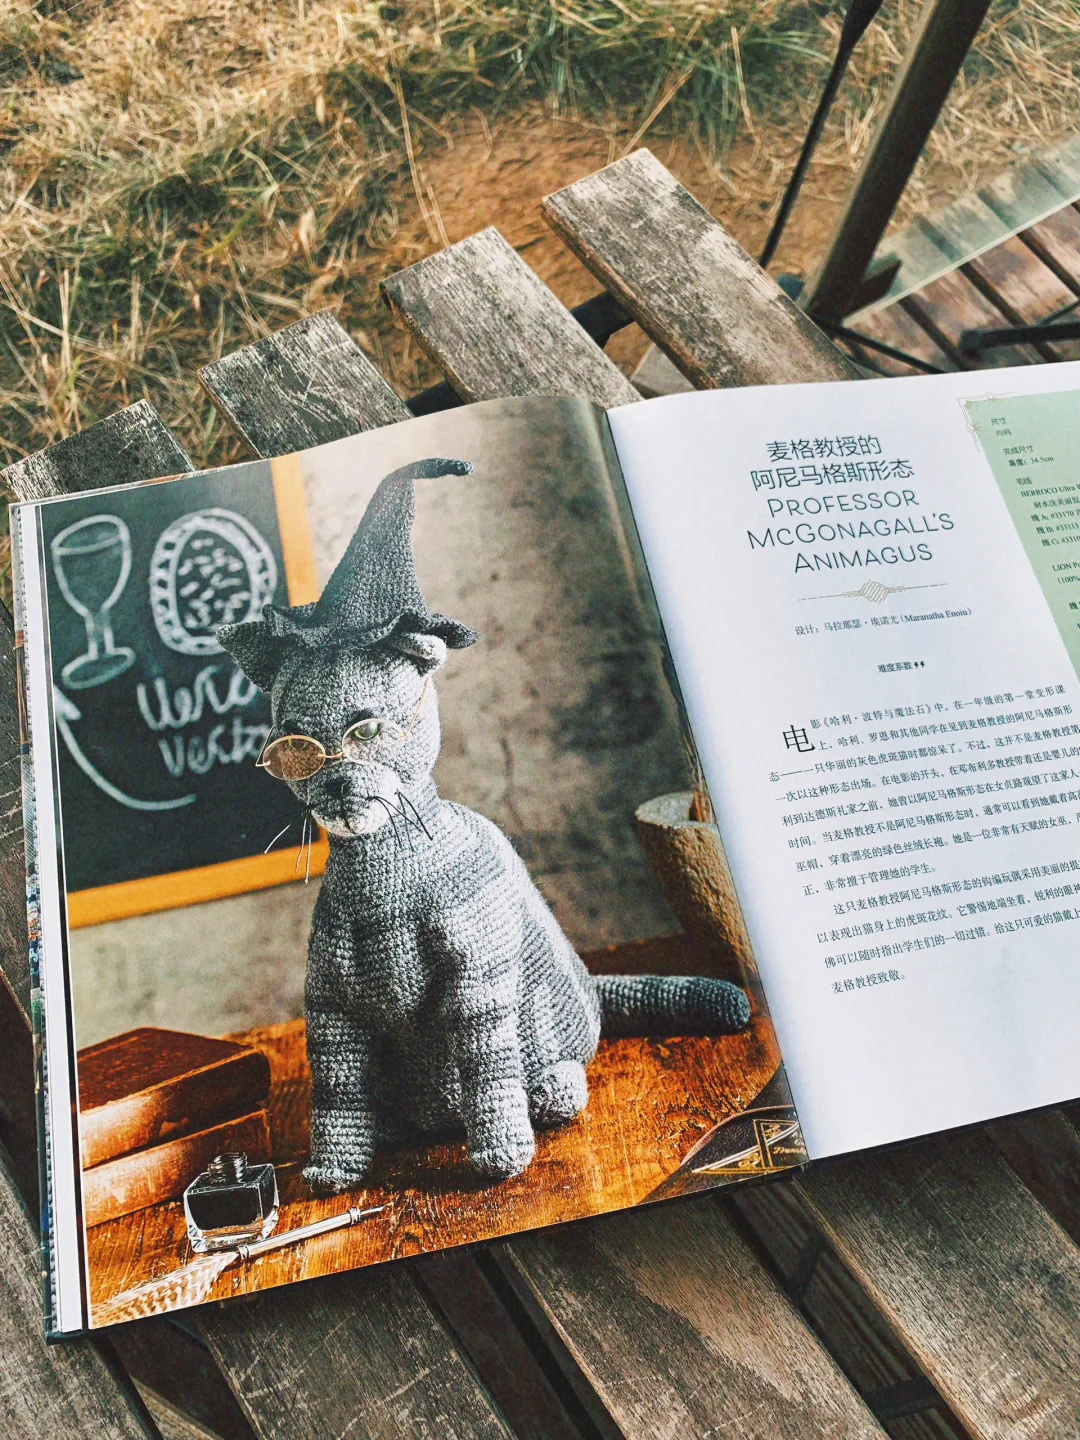 Vera
Verto
麦格教授的
阿尼马格斯形态
PROFESSOR
MCGONAGALL'S
ANIMAGUS
设计：马拉那瑟·埃诺尤（Maranatha Enoiu）
难度系数
电影《哈利·波特与魔法石》中，在一年级的第一堂变形课
上，哈利、罗恩和其他同学在见到麦格教授的阿尼马格斯形
态——一只华丽的灰色虎斑猫时都惊呆了。不过，这并不是麦格教授第
一次以这种形态出场。在电影的开头，在邓布利多教授带着还是婴儿的
利到达德斯礼家之前，她曾以阿尼马格斯形态在女贞路观望了这家人
时间。当麦格教授不是阿尼马格斯形态时，通常可以看到她戴着高
巫帽，穿着漂亮的绿色丝绒长袍。她是一位非常有天赋的女巫，
正，非常擅于管理她的学生。
这只麦格教授阿尼马格斯形态的钩编玩偶采用美丽的
以表现出猫身上的虎斑花纹。它警惕地端坐着，锐利的眼神
佛可以随时指出学生们的一切过错。给这只可爱的猫戴上
麦格教授致敬。
尺寸
均码
完成尺寸
高度：34.5cm
毛线
BERROCO Ultra
耐水洗美丽奴
线 A：#33170
线 B：#3311
线 C：#3310
LION
（100%